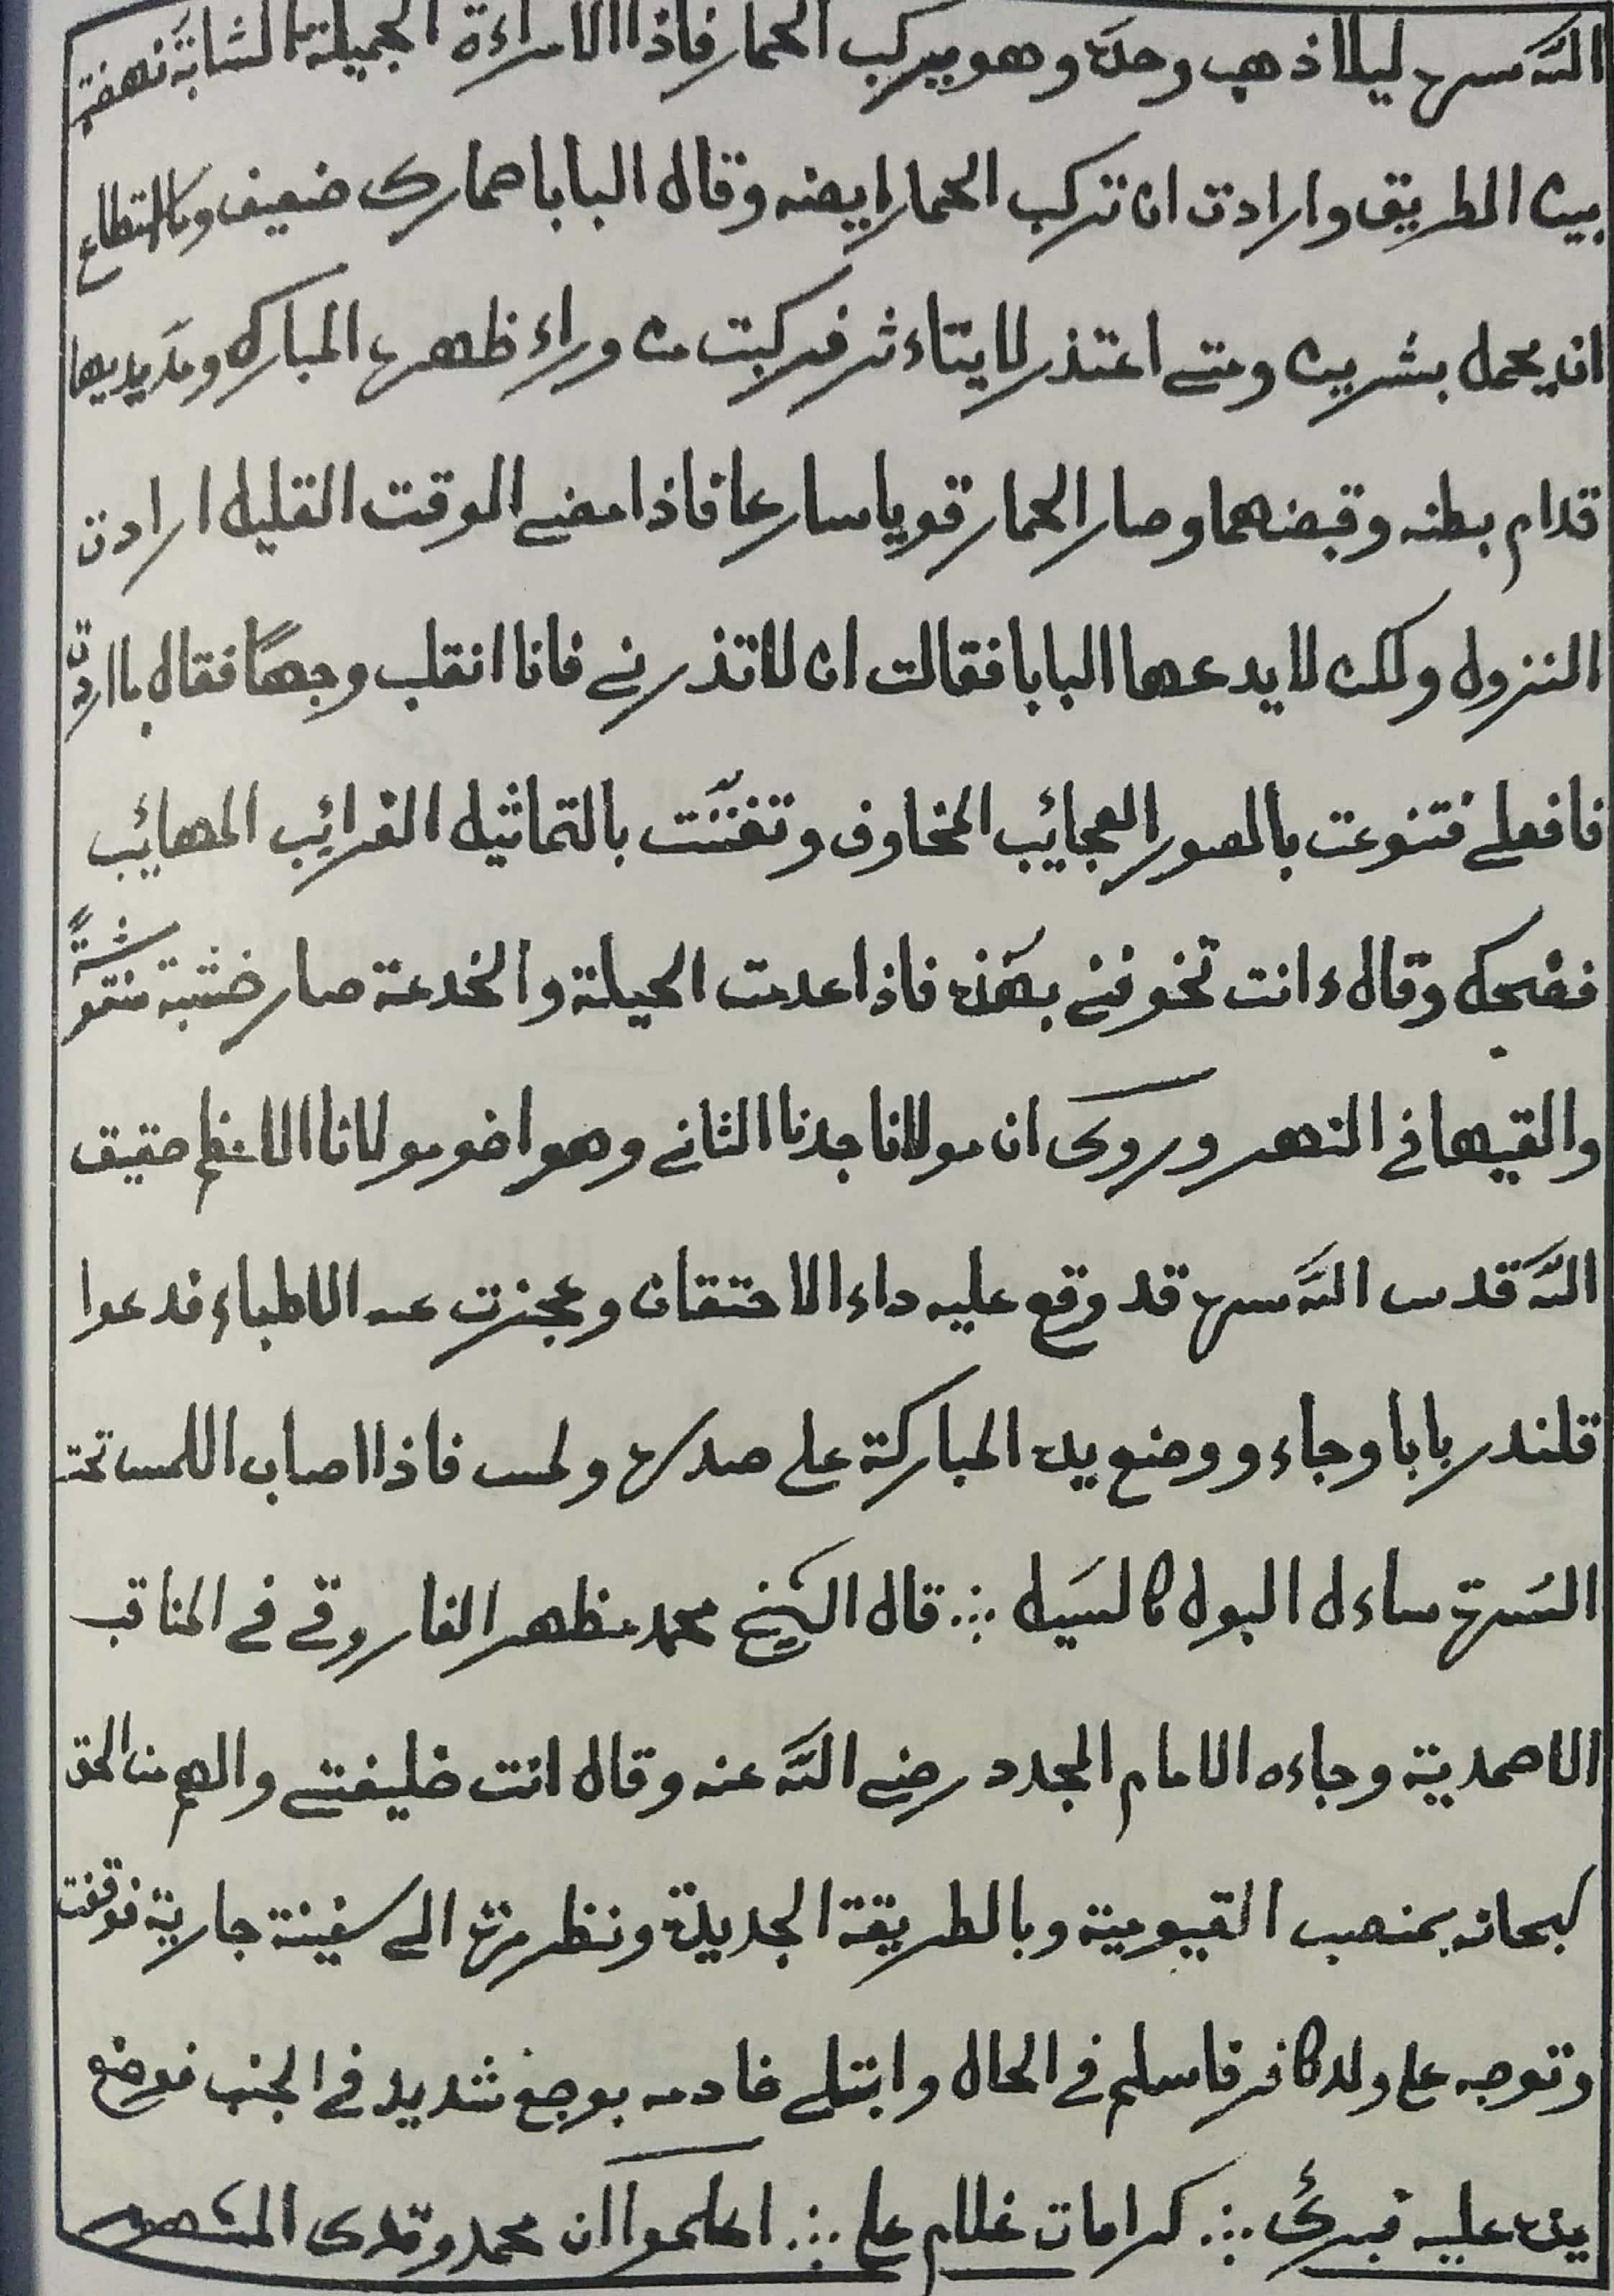 الله سره ليلا اذهب وحده وهو يركب الحمار فاذا الامراءة الجميلة الشابة نهضت
بين الطريق وارادت ان تركب الحمار ايضه وقال البابا حمارى ضعيف وما استطاع
ان يحمل بشرين ومتى اعتذر لا يتاءثر فركبت من وراء ظهره المبارك ومد يديها
قدام بطنه وقبضهما وصار الحمار قويا سارعا فاذا مضى الوقت القليل ارادت
النزول ولكن لا يدعها البابا فقالت ان لا تذرنى فانا انقلب وجهًا فقال ما اردتِ
فافعلى فتنوعت بالصور العجايب المخاوف وتفنّنت بالتماثيل الغرايب المهايب
فضحك وقال ءانت تخوفنى بهذه فاذا عدمت الحيلة والخدعة صار خشبة منقوشةً
والقيها فى النهر وروى ان مولانا جدنا الثانى وهو اخو مولانا الاعظم حقيق
الله قدس الله سره قد وقع عليه داء الاحتقان وعجزت عنه الاطباء فدعوا
قلندر بابا وجاء ووضع يده المباركة على صدره ولمس فاذا اصاب اللمس تحت
السرة ساءل البول كالسيل ؞ قال الشيخ محمد مظهر الفاروقى فى المناقب
الاحمدية وجاءه الامام المجدد رضى الله عنه وقال انت خليفتى والهم من الحق
سبحانه بمنصب القيومية وبالطريقة الجديدة ونظر مرة الى سفينة جارية فوقفت
وتوجه على ولد كافر فاسلم فى الحال وابتلى خادمه بوجع شديد فى الجنب فوضع
يده عليه فبرئ ؞ كرامات غلام على ؞ اعلموا ان محمد وقدى المشهور